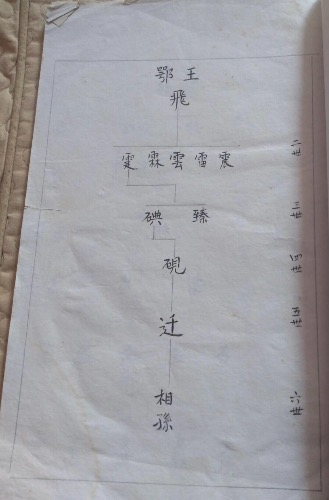 鄂王
飛
霆 霖 雲 雷 震
二世
碘 臻
三世
硯
四世
迁
五世
相孫
六世